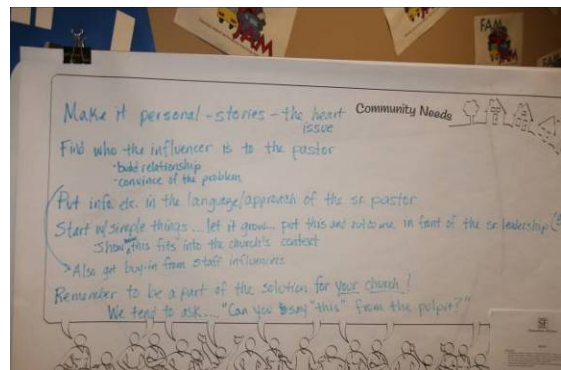 JAM
FAM
JAM
Community Needs
Make it personal - stories - the heart
issue
Find who the influencer is to the pastor
· build relationship
· convince of the problem
Put info etc. in the language/approach of the sr. pastor
Start w/ simple things ... let it grow... put this and outcome in front of the sr. leadership
Show how this fits into the church's context
Also get buy-in from staff influencers
Remember to be a part of the solution for your church!
We tend to ask.... "Can you say "this" from the pulpit?"